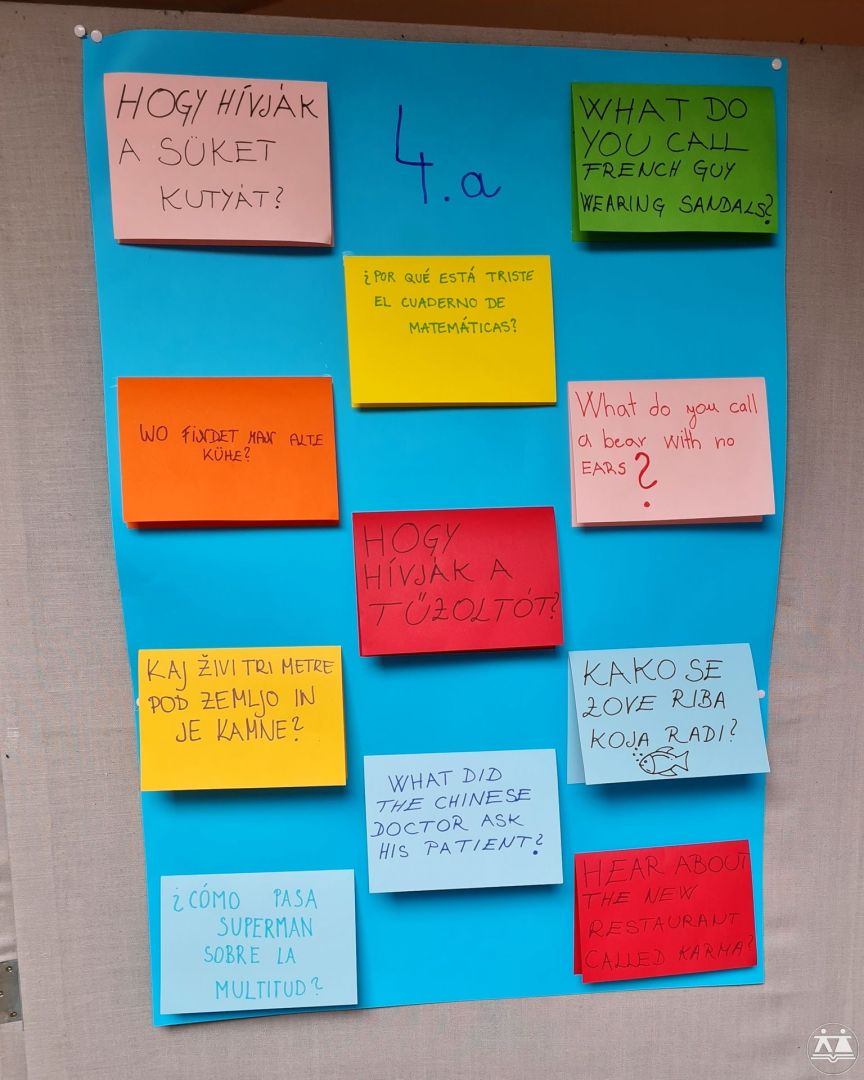 HOGY HÍVJÁK
A SÜKET
KUTYÁT?
4.a
WHAT DO
YOU CALL
FRENCH GUY
WEARING SANDALS?
¿POR QUÉ ESTÁ TRISTE
EL CUADERNO DE
MATEMÁTICAS?
WO FINDET MAN ALTE
KÜHE?
What do you call
a bear with no
EARS?
HOGY
HÍVJÁK A
TŰZOLTÓT?
KAJ ŽIVI TRI METRE
POD ZEMLJO IN
JE KAMNE?
KAKO SE
ZOVE RIBA
KOJA RADI?
WHAT DID
THE CHINESE
DOCTOR ASK
HIS PATIENT?
¿CÓMO PASA
SUPERMAN
SOBRE LA
MULTITUD?
HEAR ABOUT
THE NEW
RESTAURANT
CALLED KARMA?